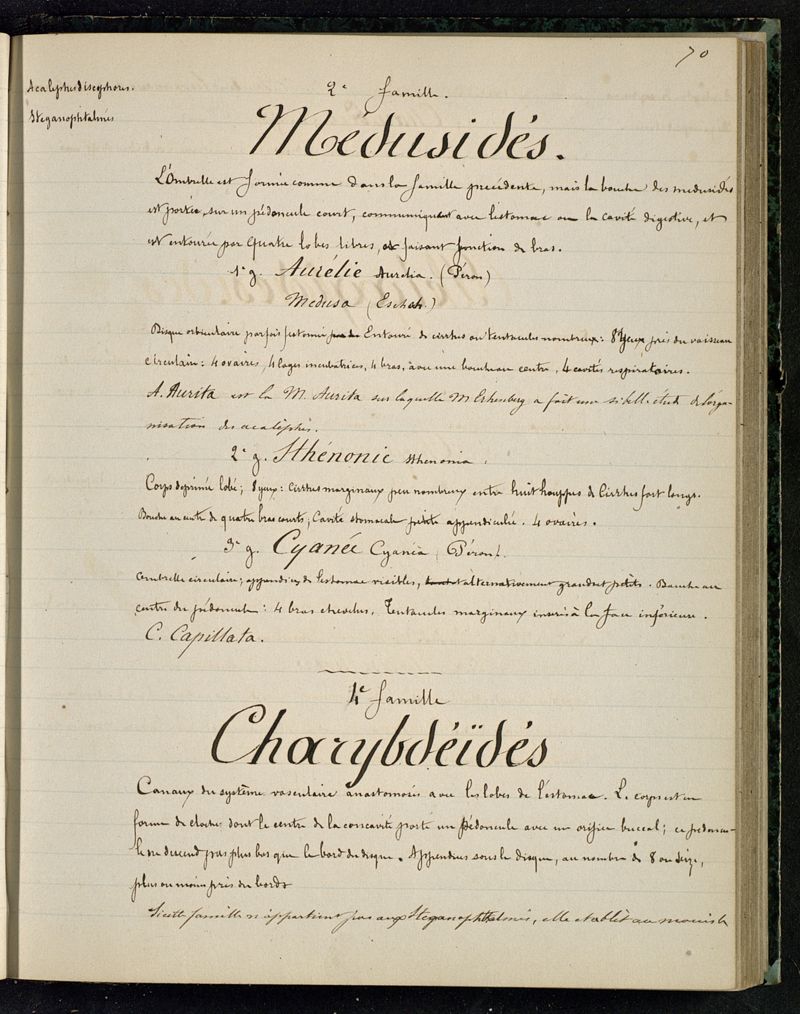 70
Acalephes discophores.
Steganophtalmés
2e famille.
Médusidés.
L'Ombrelle est formée comme dans la famille precédente, mais la bouche des medusidés
est portée sur un pédoncule court, communiquant avec l'estomac ou la cavité digestive, et
est entourée par quatre lobes libres, et faisant fonction de bras.
1e g. Aurélie Aurelia. (Péron)
Medusa (Esch.)
Disque orbiculaire parfois festonné Entouré de cirrhes ou tentacules nombreux: 8 yeux près du vaisseau
circulaire: 4 ovaires, 4 loges incubatrices, 4 bras, avec une bouche au centre, 4 cavités respiratoires.
A. Aurita est la M. Aurita sur laquelle Mr Erhenberg a fait une si belle étude de l'orga-
nisation des acalephes.
2e g. Sthénonie Sthenonia.
Corps déprimé lobé; 8 yeux: Cirrhes marginaux peu nombreux entre huit houppes de Cirrhes fort longs.
Bouche au centre de quatre bras courts; Cavité stomacale petite appendiculée. 4 ovaires.
3e g. Cyanée Cyania (Péron).
Ombrelle circulaire; appendices de l'estomac visibles, alternativement grands et petits. Bouche au
centre du pédoncule: 4 bras chevelus. Tentacules marginaux inserés à la face inférieure.
C. Capillata.
4e famille
Charybdéïdés
Canaux du système vasculaire anastomosés avec les lobes de l'estomac. Le corps est en
forme de cloche dont le centre de la concavité porte un pédoncule avec un orifice buccal; ce pédoncu-
le ne descend pas plus bas que le bord du disque. Appendices sous le disque, au nombre de 8 ou seize,
plus ou moins près du bord
Si cette famille n'appartient pas aux Steganophthalmés, elle etablit au moins le